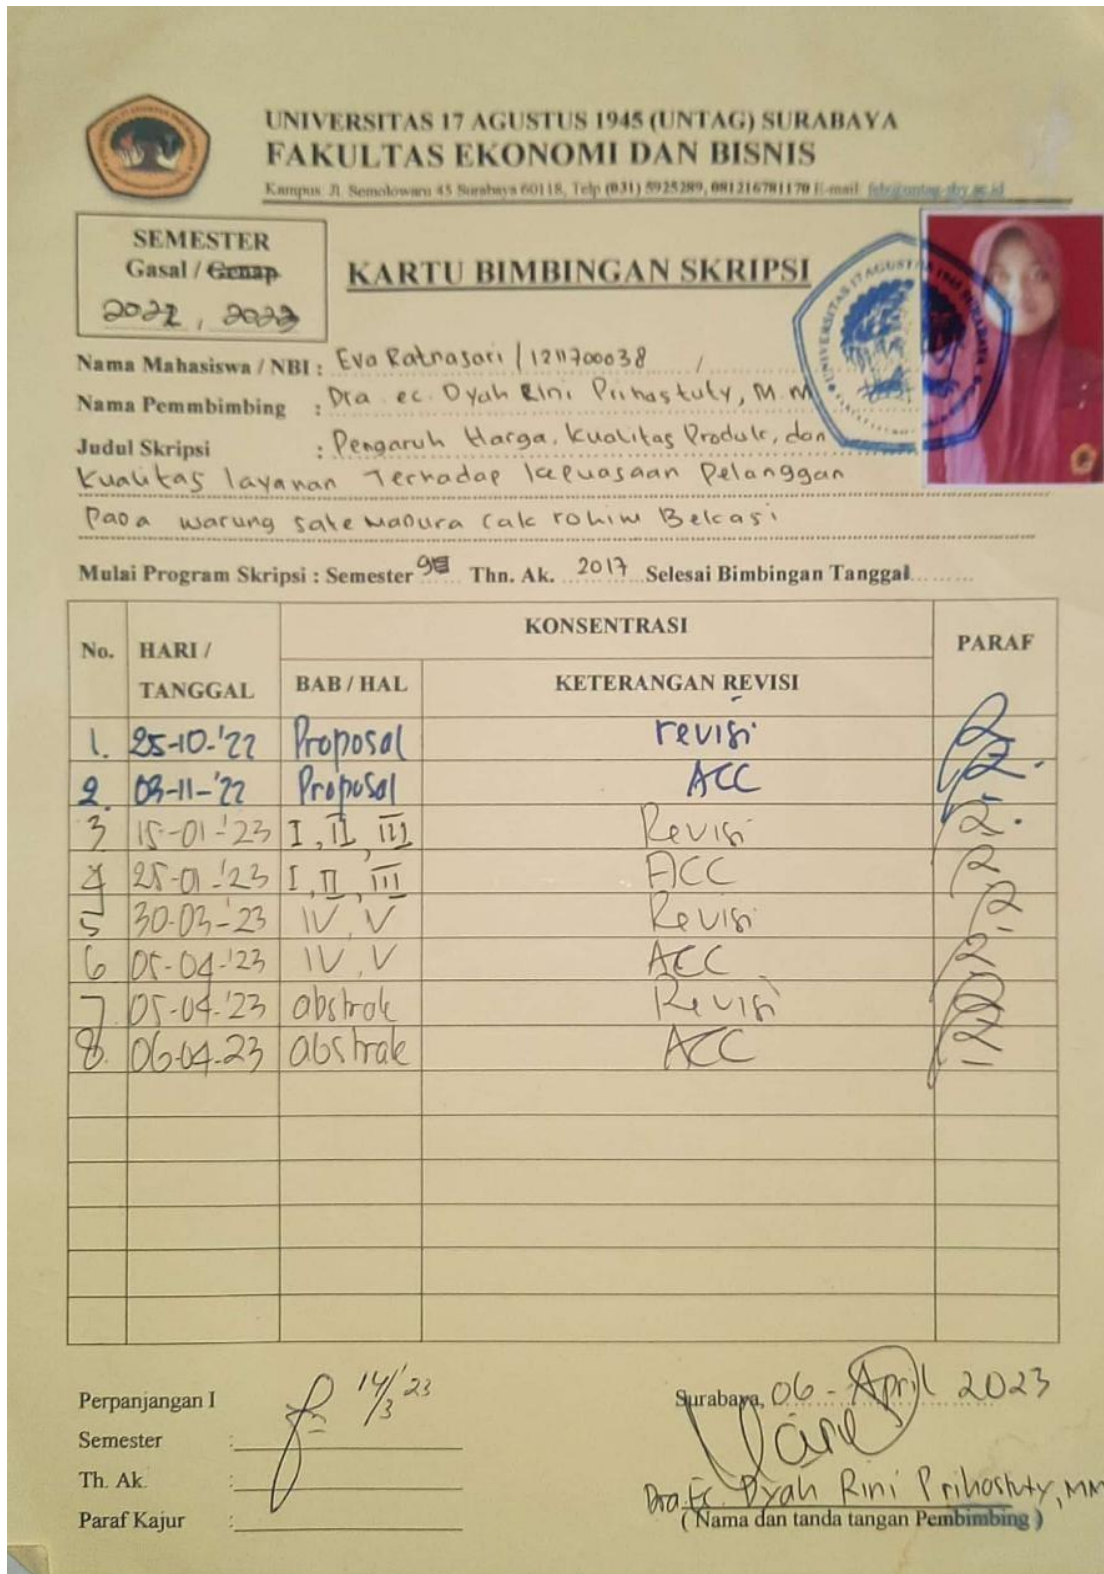 UNIVERSITAS 17 AGUSTUS 1945 (UNTAG) SURABAYA
FAKULTAS EKONOMI DAN BISNIS
Kampus Jl. Semolowaru 45 Surabaya 60118, Telp (031) 5925289, 081216781170 E-mail: feb@untag-sby.ac.id
SEMESTER
Gasal / Genap
2022, 2023
KARTU BIMBINGAN SKRIPSI
Nama Mahasiswa / NBI : Eva Ratnasari / 1211700038 /
Nama Pemmbimbing : Dra. ec. Dyah Rini Prihastuty, M.M
Judul Skripsi : Pengaruh Harga, Kualitas Produk, dan
Kualitas layanan Terhadap kepuasaan Pelanggan
Pada warung sate Madura Cak rohim Bekasi
Mulai Program Skripsi : Semester Thn. Ak. 2017 Selesai Bimbingan Tanggal
No. HARI / TANGGAL KONSENTRASI PARAF
BAB / HAL KETERANGAN REVISI
1. 25-10-'22 Proposal revisi
2. 03-11-'22 Proposal ACC
3 15-01-'23 I, II, III Revisi
4 25-01-'23 I, II, III ACC
5 30-03-'23 IV, V Revisi
6 05-04-'23 IV, V ACC
7. 05-04-'23 abstrak Revisi
8. 06-04-23 abstrak ACC
Perpanjangan I 14/3 '23
Semester :
Th. Ak. :
Paraf Kajur :
Surabaya, 06 - April 2023
Dra. Ec. Dyah Rini Prihastuty, MM
( Nama dan tanda tangan Pembimbing )